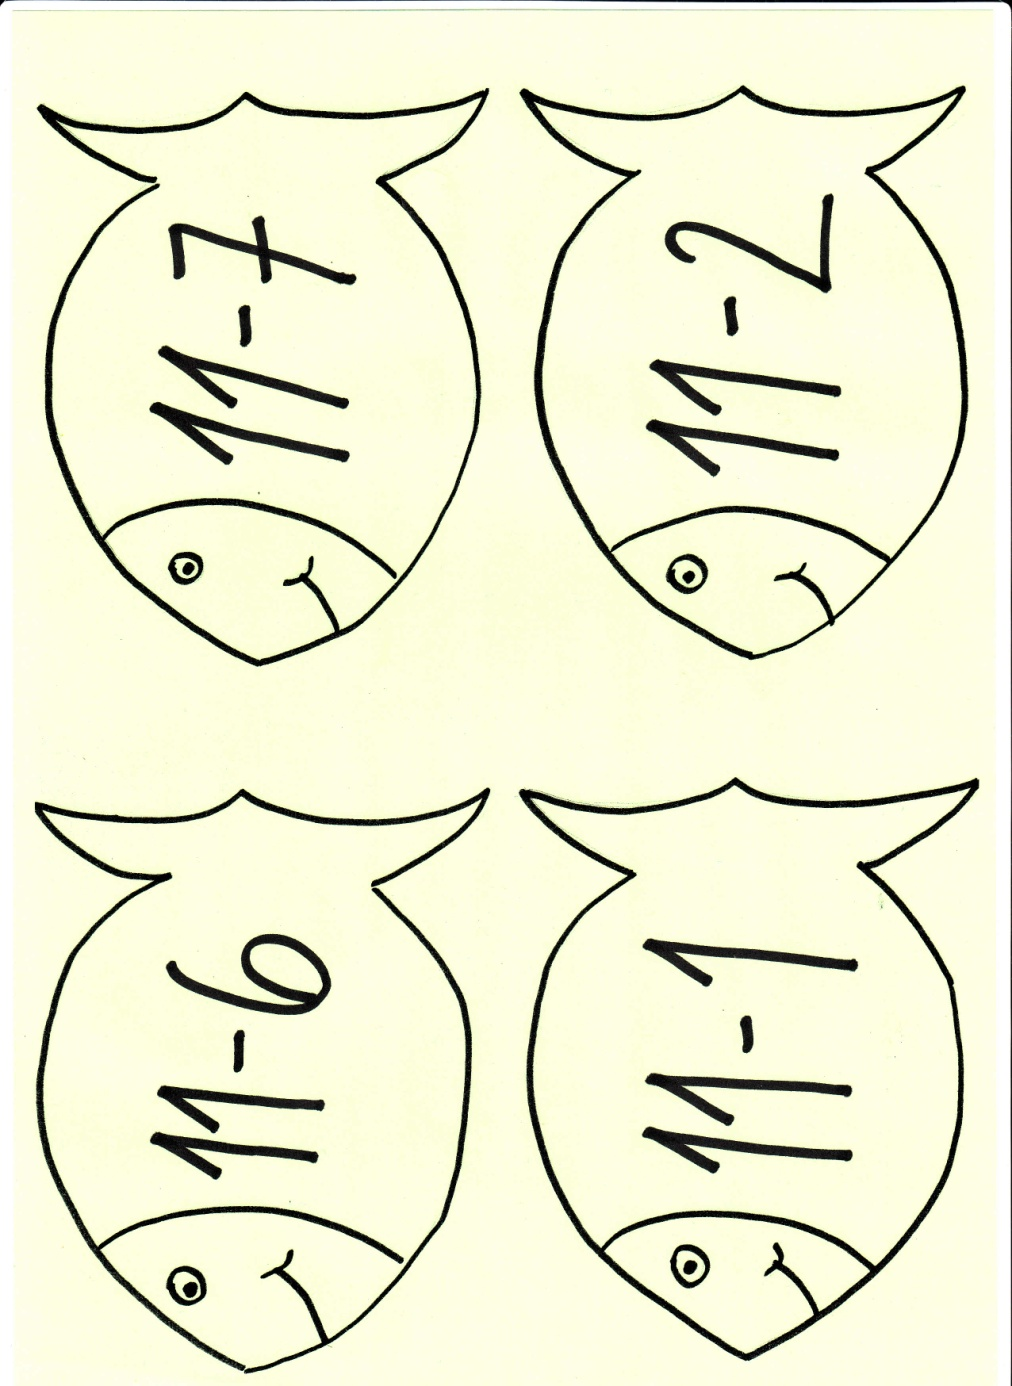 11-7
11-2
11-6
11-1